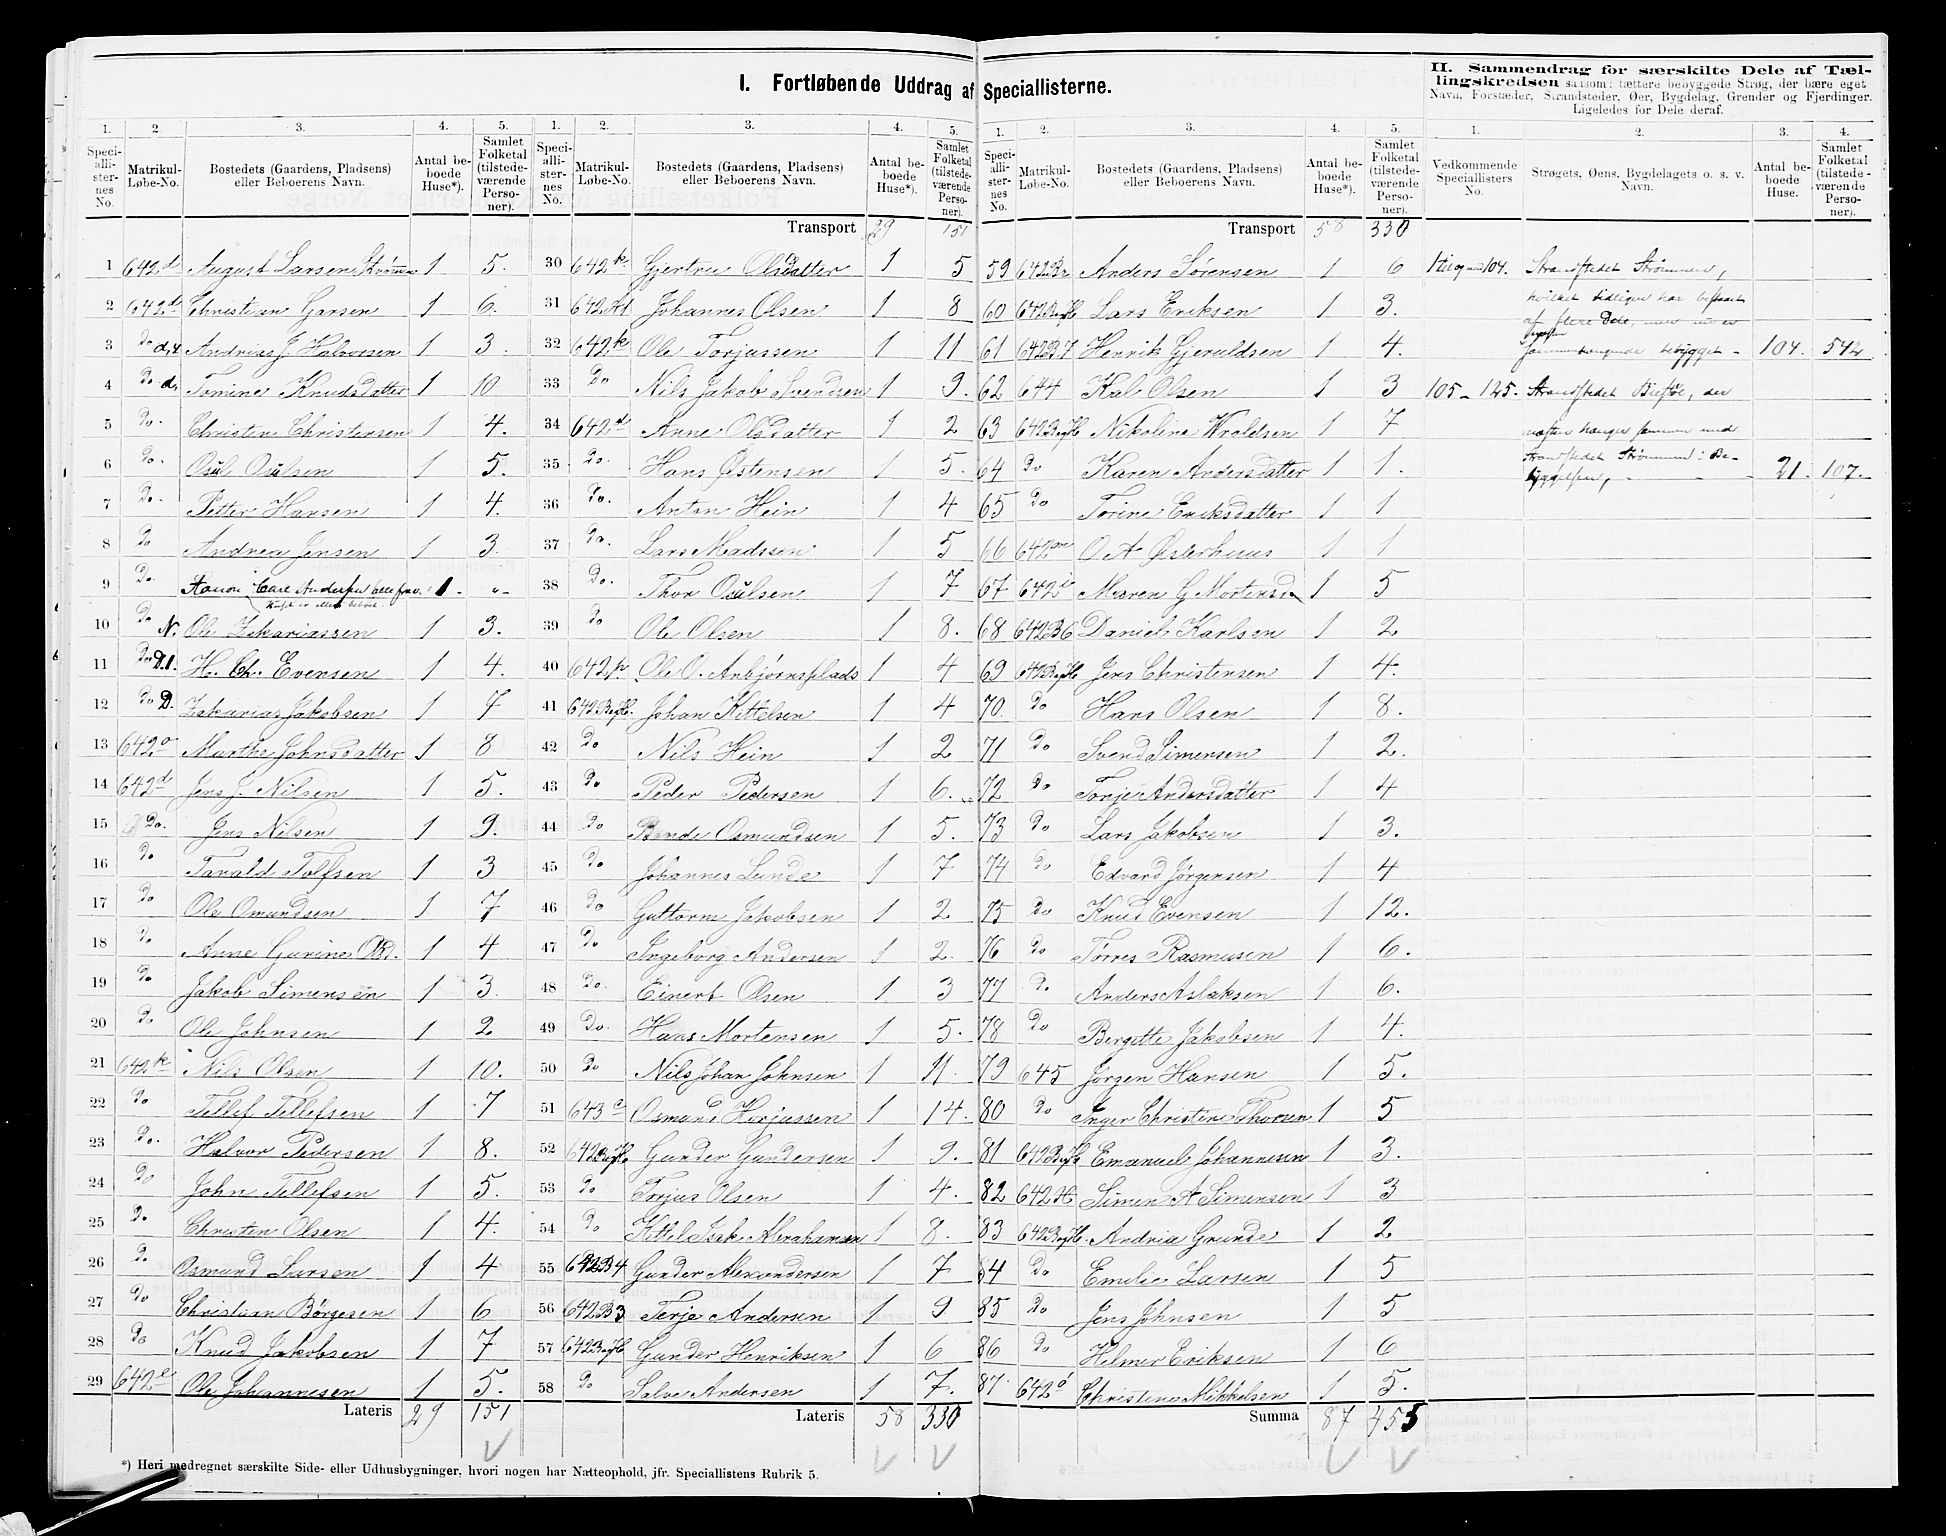 I. Fortløbende Uddrag af Speciallisterne.
II. Sammendrag for særskilte Dele af Tællingskredsen saasom: tættere bebyggede Strøg, der bære eget
Navn, Forstæder, Strandsteder, Øer, Bygdelag, Grender og Fjerdinger.
Ligeledes for Dele deraf.
1. 2. 3. 4. 5.
Speciallisternes No. Matrikul-Løbe-No. Bostedets (Gaardens, Pladsens) eller Beboerens Navn. Antal beboede Huse*). Samlet Folketal (tilstedeværende Personer).
1 642d August Larsen Strømm 1 5.
2 642d Christian Garsen 1 6.
3 Do d,4 Andrias J Halvorsen 1 3.
4 Do d, Tomine Knudsdatter 1 10
5 Do. Christen Christensen 1 4.
6 Do. Osul Osulsen 1 5.
7 Do. Petter Hansen 1 4.
8 Do Andrea Jensen 1 3.
9 Do. Carl Andersen 1. "-
10 Do N. Ole Zakariassen 1 3.
11 Do D.1. H. Ch. Evensen 1 4.
12 Do D. Zakarias Jakobsen 1 7
13 642o Marthe Johnsdatter 1 8
14 642d Jens J. Nilsen 1 5.
15 Do. Jens Nilsen 1 9.
16 Do Tarald Tolfsen 1 3
17 Do Ole Omundsen 1 7
18 Do Anne Gurine Olsd. 1 4
19 Do Jakob Simensen 1 3.
20 Do Ole Johnsen 1 2
21 642k Nils Olsen 1 10.
22 Do Tellef Tellefsen 1 7
23 Do. Halvor Pedersen 1 8.
24 Do John Tellefsen 1 5.
25 Do Christen Olsen 1 4.
26 Do Osmund Larsen 1 4
27 Do Christian Børgesen 1 6
28 Do Knud Jakobsen 1 7
29 642e Ole Johannesen 1 5.
Lateris 29 151
1. 2. 3. 4. 5.
Speciallisternes No. Matrikul-Løbe-No. Bostedets (Gaardens, Pladsens) eller Beboerens Navn. Antal beboede Huse*). Samlet Folketal (tilstedeværende Personer).
Transport 29 151
30 642k Gjertru Olsdatter 1 5
31 Johannes Olsen 1 8
32 642k Ole Torjussen 1 11
33 Do Nils Jakob Svendsen 1 9.
34 642d Anne Olsdatter 1 2
35 Do. Hans Østensen 1 5.
36 Do. Anton Hein 1 4
37 Do. Lars Madssen 1 5
38 Do. Thor Osulsen 1 7
39 Do Ole Olsen 1 8.
40 Ole O. Anbjørnsplads 1 4
41 Johan Kittelsen 1 4
42 Do Nils Hein 1 2
43 Do Peder Pedersen 1 6.
44 Do Osmundsen 1 5.
45 Do Johannes Lunde 1 7
46 Do Guttorm Jakobsen 1 2
47 Do Ingeborg Andersen 1 2.
48 Do. Einert Olsen 1 3
49 Do. Hans Mortensen 1 5.
50 Do Nils Johan Johnsen 1 11.
51 Osmund Torjussen 1 14.
52 Gunder Gundersen 1 9.
53 Do Torjus Olsen 1 4.
54 Do Kittel Isak Abrahamsen 1 8.
55 642B4 Gunder Alexandersen 1 7
56 642B3 Terje Andersen 1 9
57 Gunder Henriksen 1 6
58 Do Salve Andersen 1 7.
Lateris 58 330
1. 2. 3. 4. 5.
Speciallisternes No. Matrikul-Løbe-No. Bostedets (Gaardens, Pladsens) eller Beboerens Navn. Antal beboede Huse*). Samlet Folketal (tilstedeværende Personer).
Transport 58 330
59 Anders Sørensen 1 6
60 Lars Eriksen 1 3.
61 642B.7 Henrik Gjeruldsen 1 4.
62 644 Kal Olsen 1 3
63 Nikoline Wroldsen 1 7
64 Do Karen Andersdatter 1 1.
65 Do Torine Eriksdatter 1 1
66 O A Østerhuus 1 1
67 642i Maren G Mortensd 1 5
68 642B6 Daniel Karlsen 1 2
69 Jens Christensen 1 4.
70. Do Hans Olsen 1 8.
71 Do Svend Simensen 1 2.
72 Do Torje Andersdatter 1 4
73 Do Lars Jakobsen 1 3.
74 Do Edvard Jørgensen 1 4
75 Do Knud Evensen 1 12.
76 Do Tørres Rasmusen 1 6.
77 Do Anders Aslaksen 1 6.
78 Do Bergitte Jakobsen 1 4.
79 645 Jørgen Hansen 1 5.
80 Do Inger Christine Thorsen 1 5
81 Emanuel Johannesen 1 3.
82 642H Simen A Simensen 1 3
83 Andria Grunde 1 2
84 Do Emilie Larsen 1 5
85 Do Jens Johnsen 1 5
86 Do Helmer Eriksen 1 6
87. 642o Christine Mikkelsen 1 5.
Summa 87 455
1. 2. 3. 4.
Vedkommende Speciallisters No. Strøgets, Øens, Bygdelagets o. s. v. Navn. Antal beboede Huse. Samlet Folketal (tilstedeværende Personer).
1 til og med 104. Strandstedet Strømmen,
hvilket tidligere har bestaaet
af flere Dele, men nu er
sammenhængende bebygget - 104. 542
105 - 125. Strandstedet der
næsten hænger sammen med
Strandstedet Strømmen i Be-
byggelsen, - 21. 107.
*) Heri medregnet særskilte Side- eller Udhusbygninger, hvori nogen har Natteophold, jfr. Speciallistens Rubrik 5.